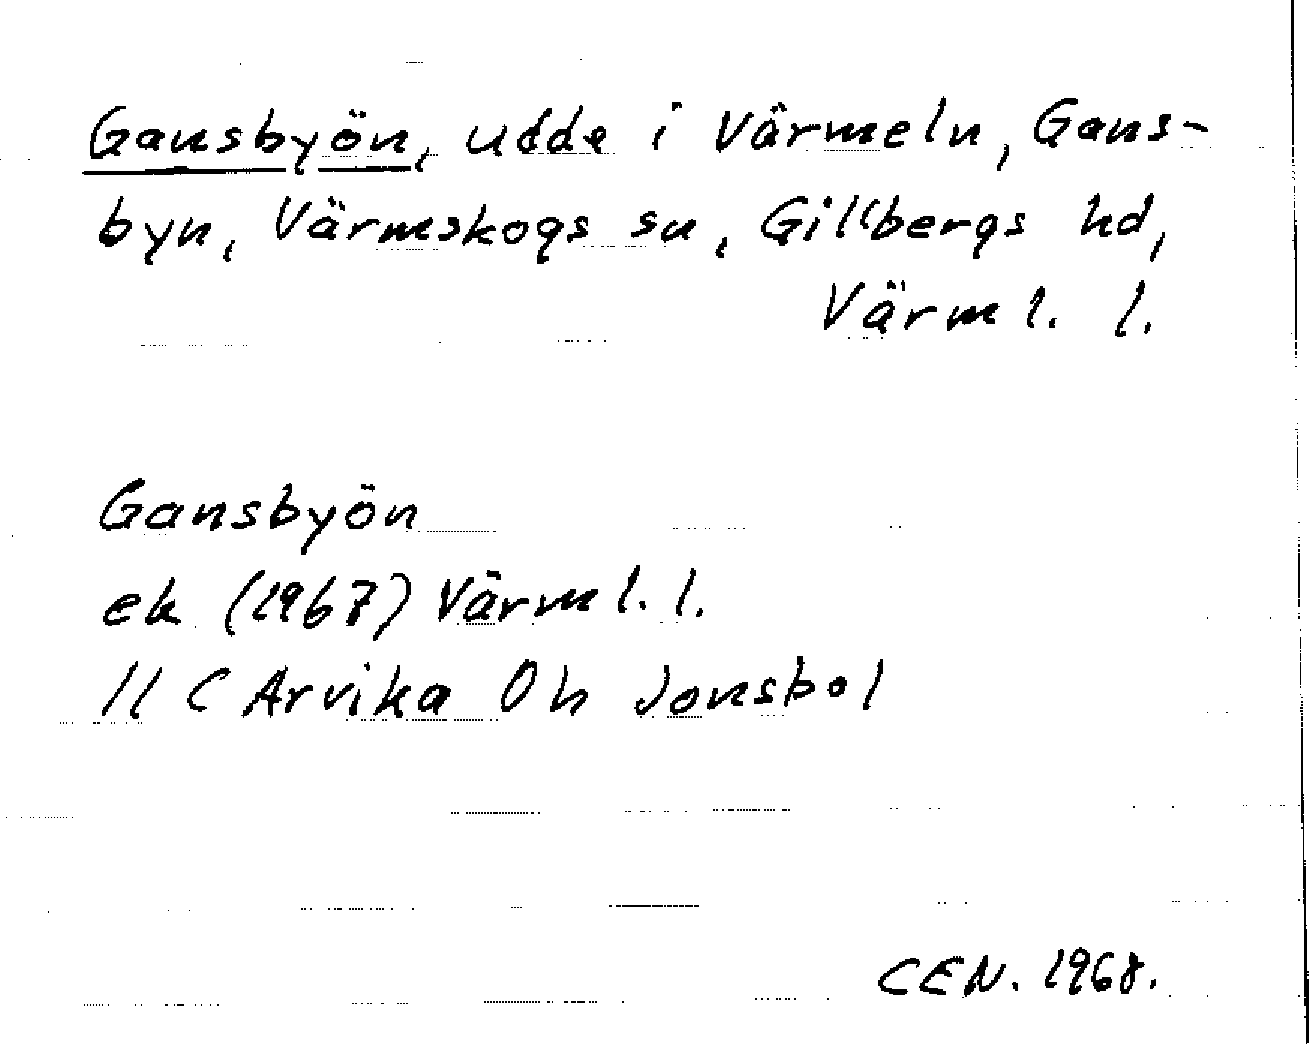 Gansbyön, udde i Värmeln, Gans-
byn, Värmskogs sn, Gillbergs hd,
Värml. l.
Gansbyön
ek (1967) Värml. l.
11 C Arvika 0 h Jonsbol
CEN. 1968.